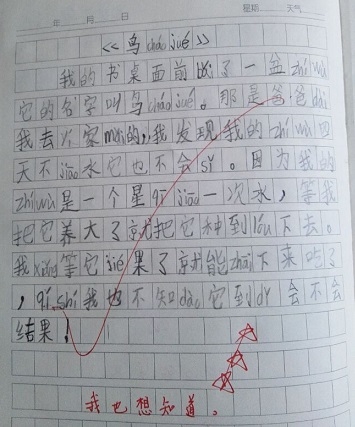 年 月 日 星期 天气
《鸟cháo jué》
我的书桌面前放了一盆zhí wù
它的名字叫鸟cháo jué。那是爸爸dài
我去人家mǎi的,我发现我的zhí wù四
天不jiāo水它也不会sǐ。因为我的
zhí wù是一个星qī jiāo一次水,等我
把它养大了就把它种到lóu下去。
我xiǎng等它jié果了就能zhāi下来吃了
,qí shí我也不知dào它到dǐ会不会
结果!
我也想知道。